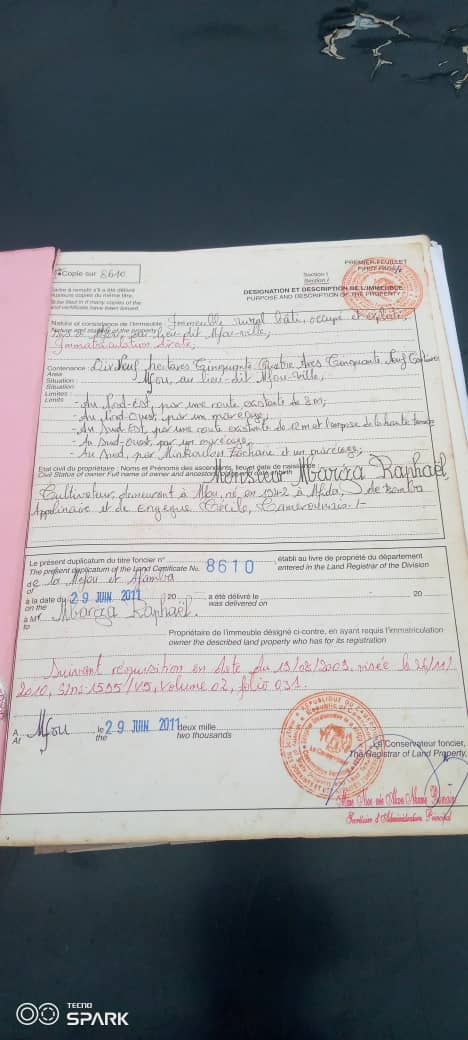 Copie sur 8610
PREMIER FEUILLET
Section I
Section I
DESIGNATION ET DESCRIPTION DE L'IMMEUBLE
PURPOSE AND DESCRIPTION OF THE PROPERTY
Nature et consistance de l'immeuble : Immeuble rural bâti, occupé et exploité,
Nature and state of the property
lieu dit Mfou-ville,
Immatriculation directe,
Contenance : hectares Cinquante Quatre Ares Cinquante Neuf Centiares
Area
Situation : Mfou, au lieu-dit Mfou-Ville,
Situation
Limites :
Limits
- Au Nord-Est, par une route existante de 8m;
- Au Nord-Ouest, par un marécage;
- Au Sud-Est, par une route existante de 12m et l'emprise de la haute tension
- Au Sud-Ouest, par un marécage;
- Au Sud, par Zacharie et un marécage;
Etat civil du propriétaire : Noms et Prénoms des ascendants, lieu et date de naissance
Civil Status of owner Full name of owner and ancestors, place and date of birth
Monsieur Mbarza Raphaël,
Cultivateur, demeurant à Mfou, né en 1942 à de
Appolinaire et de Cécile, Camerounaise /-
Le présent duplicatum du titre foncier n°
établi au livre de propriété du département
The present duplicatum of the Land Certificate No. 8610
entered in the Land Registrar of the Division
de la Mefou et Afamba
of
à la date du 29 JUIN 2011 20 a été délivré le 20
on the was delivered on
à Mr Mbarza Raphaël.
to
Propriétaire de l'immeuble désigné ci-contre, en ayant requis l'immatriculation
owner the described land property who has for its registration
Suivant réquisition en date du 19/08/2009, visée le 26/11/
2010, s/ns 1595/V5, volume 02, folio 031.
A Mfou le 29 JUIN 2011 deux mille
At the two thousands
Le Conservateur foncier,
The Registrar of Land Property,
Secrétaire d'Administration Principal
TECNO
SPARK